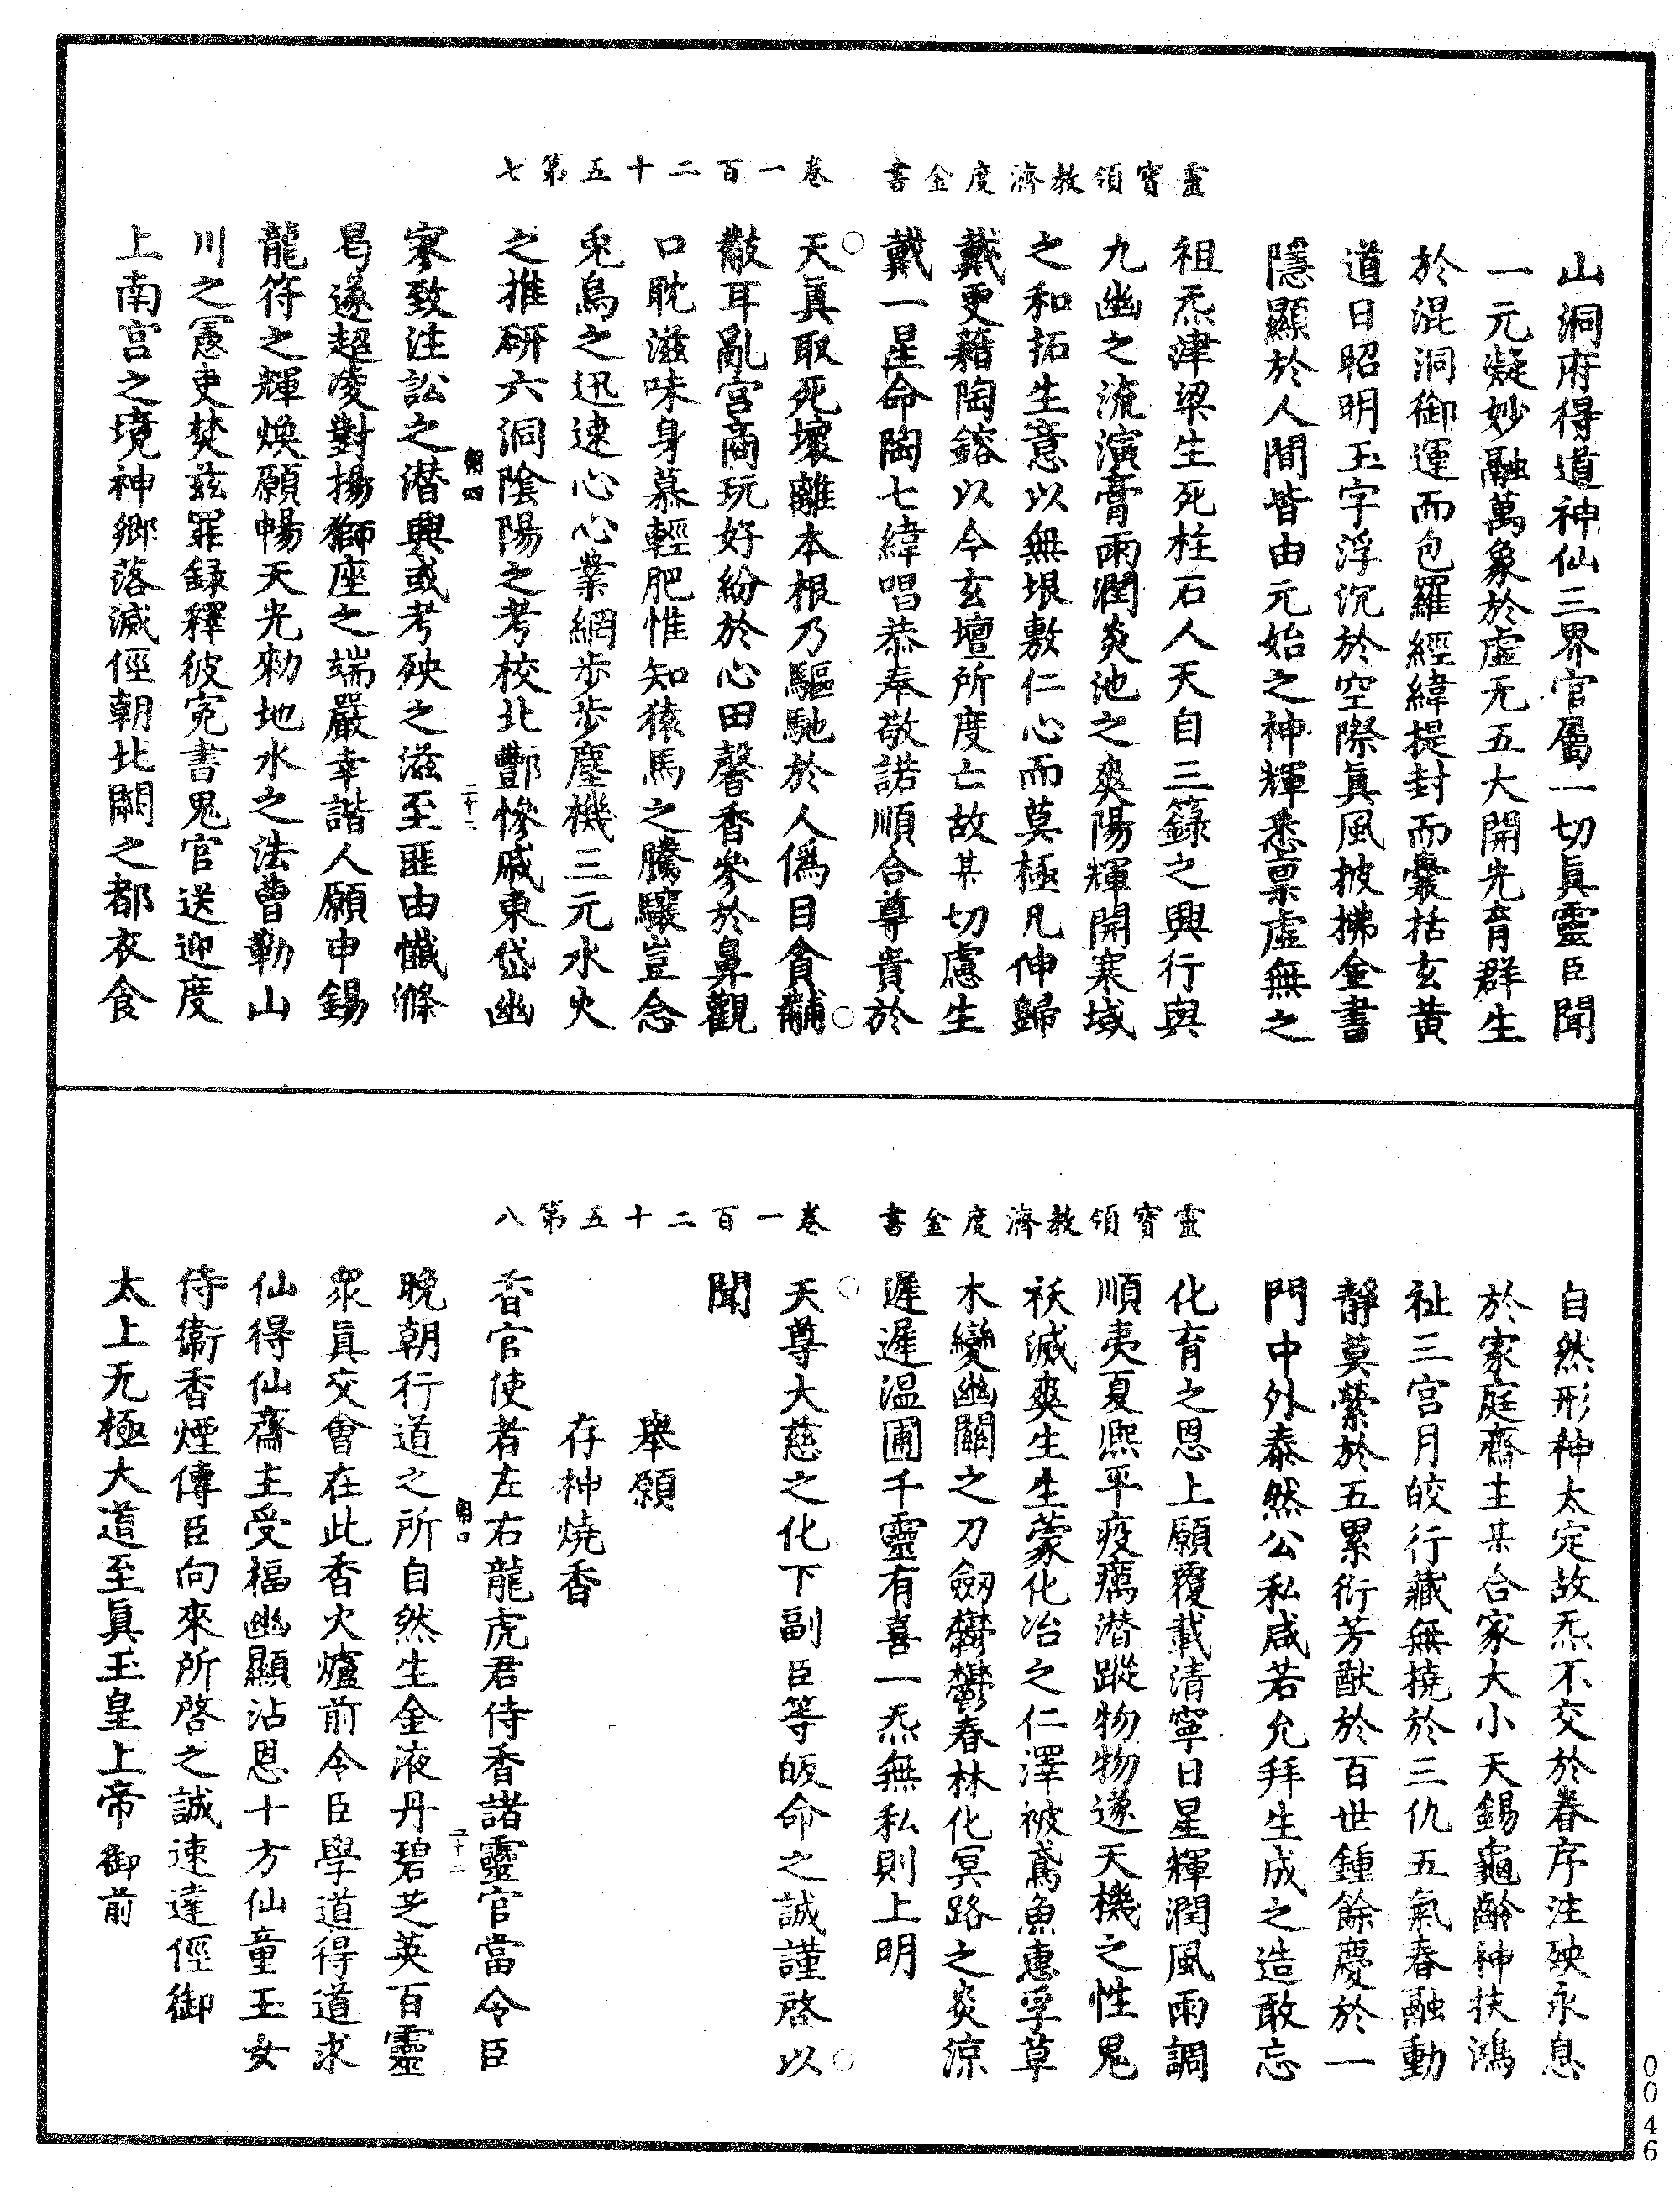 靈寶領教濟度金書　卷一百二十五第七
山洞府得道神仙三界官屬一切眞靈臣聞
一元凝妙融萬象於虛无五大開先育群生
於混洞御運而包羅經緯提封而囊括玄黄
道日昭明玉字浮沉於空際眞風披拂金書
隱顯於人間皆由元始之神輝悉禀虛無之
祖炁津梁生死柱石人天自三籙之興行與
九幽之流演膏雨潤炎池之爽陽輝開寒域
之和拓生意以無垠敷仁心而莫極凡伸歸
戴更藉陶鎔以今玄壇所度亡故某切慮生
戴一星命陶七緯唱恭奉敬諾順合尊貴於
天眞取死壞離本根乃驅馳於人僞目貪黼
黻耳亂宮商玩好紛於心田馨香參於鼻觀
口耽滋味身慕輕肥惟知猿馬之騰驤豈念
兎烏之迅速心心業網步步塵機三元水火
之推研六洞陰陽之考校北酆慘戚東岱幽
二十二
寥致注訟之潜興或考殃之滋至匪由懴滌
曷遂超凌對揚獅座之端嚴幸諧人願申錫
龍符之輝煥願暢天光勑地水之法曹勒山
川之憲吏焚兹罪録釋彼寃書鬼官送迎度
上南宮之境神鄉落滅徑朝北闕之都衣食
靈寶領教濟度金書　卷一百二十五第八
自然形神太定故炁不交於眷序注殃永息
於家庭齋主某合家大小天錫龜齡神扶鴻
祉三宮月皎行藏無撓於三仇五氣春融動
靜莫縈於五累衍芳猷於百世鍾餘慶於一
門中外泰然公私咸若允拜生成之造敢忘
化育之恩上願覆載清寧日星輝潤風雨調
順夷夏熙平疫癘潜蹤物物遂天機之性鬼
祅滅爽生生蒙化冶之仁澤被鳶魚惠孚草
木變幽關之刀劒鬱鬱春林化冥路之炎涼
遲遲温圃千靈有喜一炁無私則上明
天尊大慈之化下副臣等皈命之誠謹啓以
聞
舉願
存神燒香
香官使者左右龍虎君侍香諸靈官當令臣
二十二
晚朝行道之所自然生金液丹碧芝英百靈
衆眞交會在此香火爐前令臣學道得道求
仙得仙齋主受福幽顯沾恩十方仙童玉女
侍衛香煙傳臣向來所啓之誠速達徑御
太上无極大道至眞玉皇上帝御前
0046